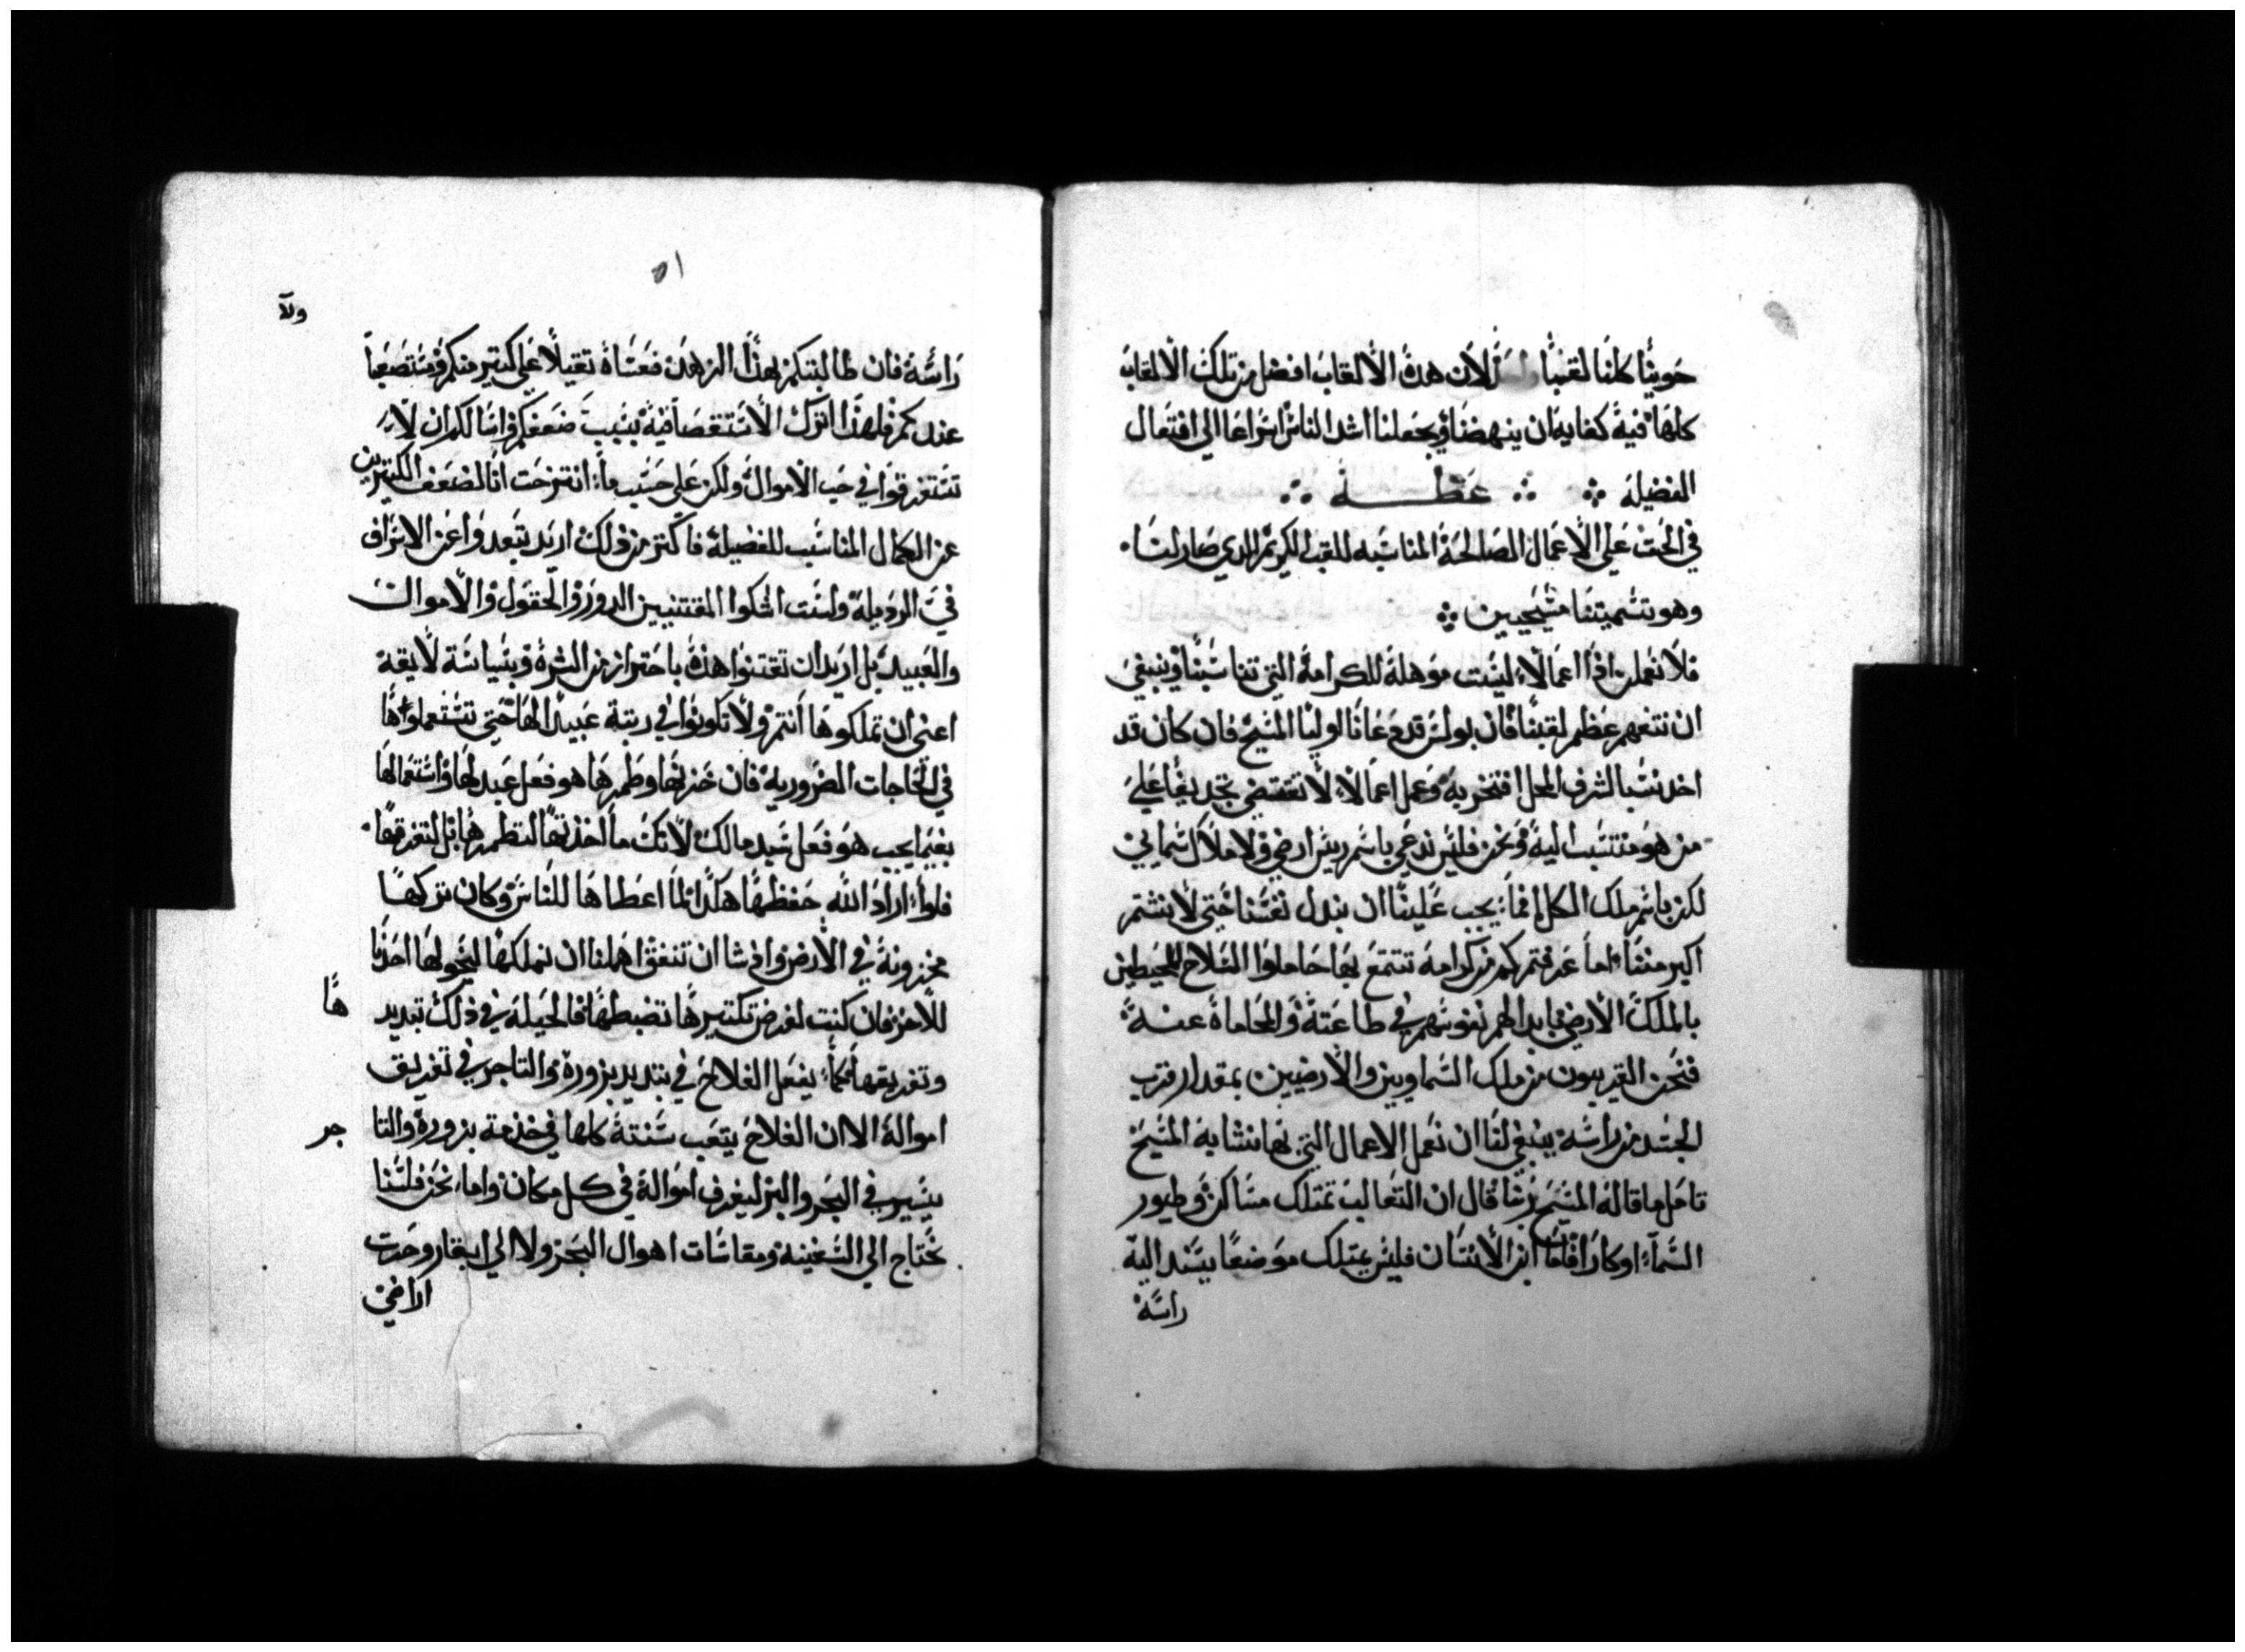 حوينا كلنا لقبنا لان هده الالقاب افضل من تلك الالقاب
كلها فيه كفايه ان ينهضنا ويجعلنا اشد الناس اسراعا الي افتعال
الفضيله ؞ ؞ عظـــة ؞
في الحث علي الاعمال الصالحة المناسبه للقب الكريم الدي صار لنا.
وهو تسميتنا مسيحيين ؞
فلا نعملن ادا اعمالا ليست موهلة للكرامة التي تناسبنا وينبغي
ان نتفهم عظم لقبنا فان بولس قد دعانا اوليا المسيح فان كان قد
اخد نسبا لشرف المحل افتخر به وعمل اعمالا لا تقتضي تجديفا علي
من هو منتسب اليه ونحن فليس ندعي باسم ريس ارضي ولا ملاك سمايي
لكن باسم ملك الكل انما يجب علينا ان نبدل نفسنا حتي لا يشتم
اكبر مننا اما عرفتم كم من كرامة تتمتع بها حاملوا السلاح المحيطين
بالملك الارضي بابدالهم نفوسهم في طاعته والمحاماة عنه
فنحن القريبون من ملك السماويين والارضيين بمقدار قرب
الجسد من راسه ينبغي لنا ان نعمل الاعمال التي بها نشابه المسيح
تامل ما قاله المسيح ربنا قال ان التعالب تمتلك مساكن وطيور
السما اوكارا فاما ابن الانسان فليس يمتلك موضعا يسند اليه
راسه
٥١
ولا
راسه فان طالبتكم بهدا الزهد فعساه تقيلا علي كتير منكم ومستصعبا
عندكم فلهدا اترك الاستقصا فيه بسبب ضعفكم واسالكم ان لا
تستغرقوا في حب الاموال ولكن علي حسب ما انتزحت انا لضعف الكتيرين
عن الكمال المناسب للفضيلة فاكتر من ذلك اريد تبعدوا عن الاسراف
في الرديلة ولست اشكوا المقتنيين الدور والحقول والاموال
والعبيد بل اريد ان تقتنوا هذه باحتراز من الشره وبسياسة لايقة
اعني ان تملكوها انتم ولا تكونوا في رتبة عبيد لها حتي تستعملوها
في الحاجات الضرورية فان خزنها وطمرها هو فعل عبد لها واستعمالها
بغيما يجب هو فعل سيد مالك لانك ما اخذتها لتطمرها بل لتفرقها.
فلو اراد الله حفظها هكدا لما اعطاها للناس وكان تركها
مخزونة في الارض واذ شا ان تنفق اهلنا ان نملكها ليخولها احدنا
للاخر فان كنت لغرض تكتيرها تضبطها فالحيلة في ذلك تبديد
ها
وتفريقها كما يفعل الفلاح في تبديد بزوره والتاجر في تفريق
امواله الا ان الفلاح يتعب سنته كلها في خدمة بزوره والتا
جر
يسير في البحر والبر ليفرق امواله في كل مكان واما نحن فلسنا
نحتاج الي السفينة ومقاسات اهوال البحر ولا الي ابقار وحرت
اراضي